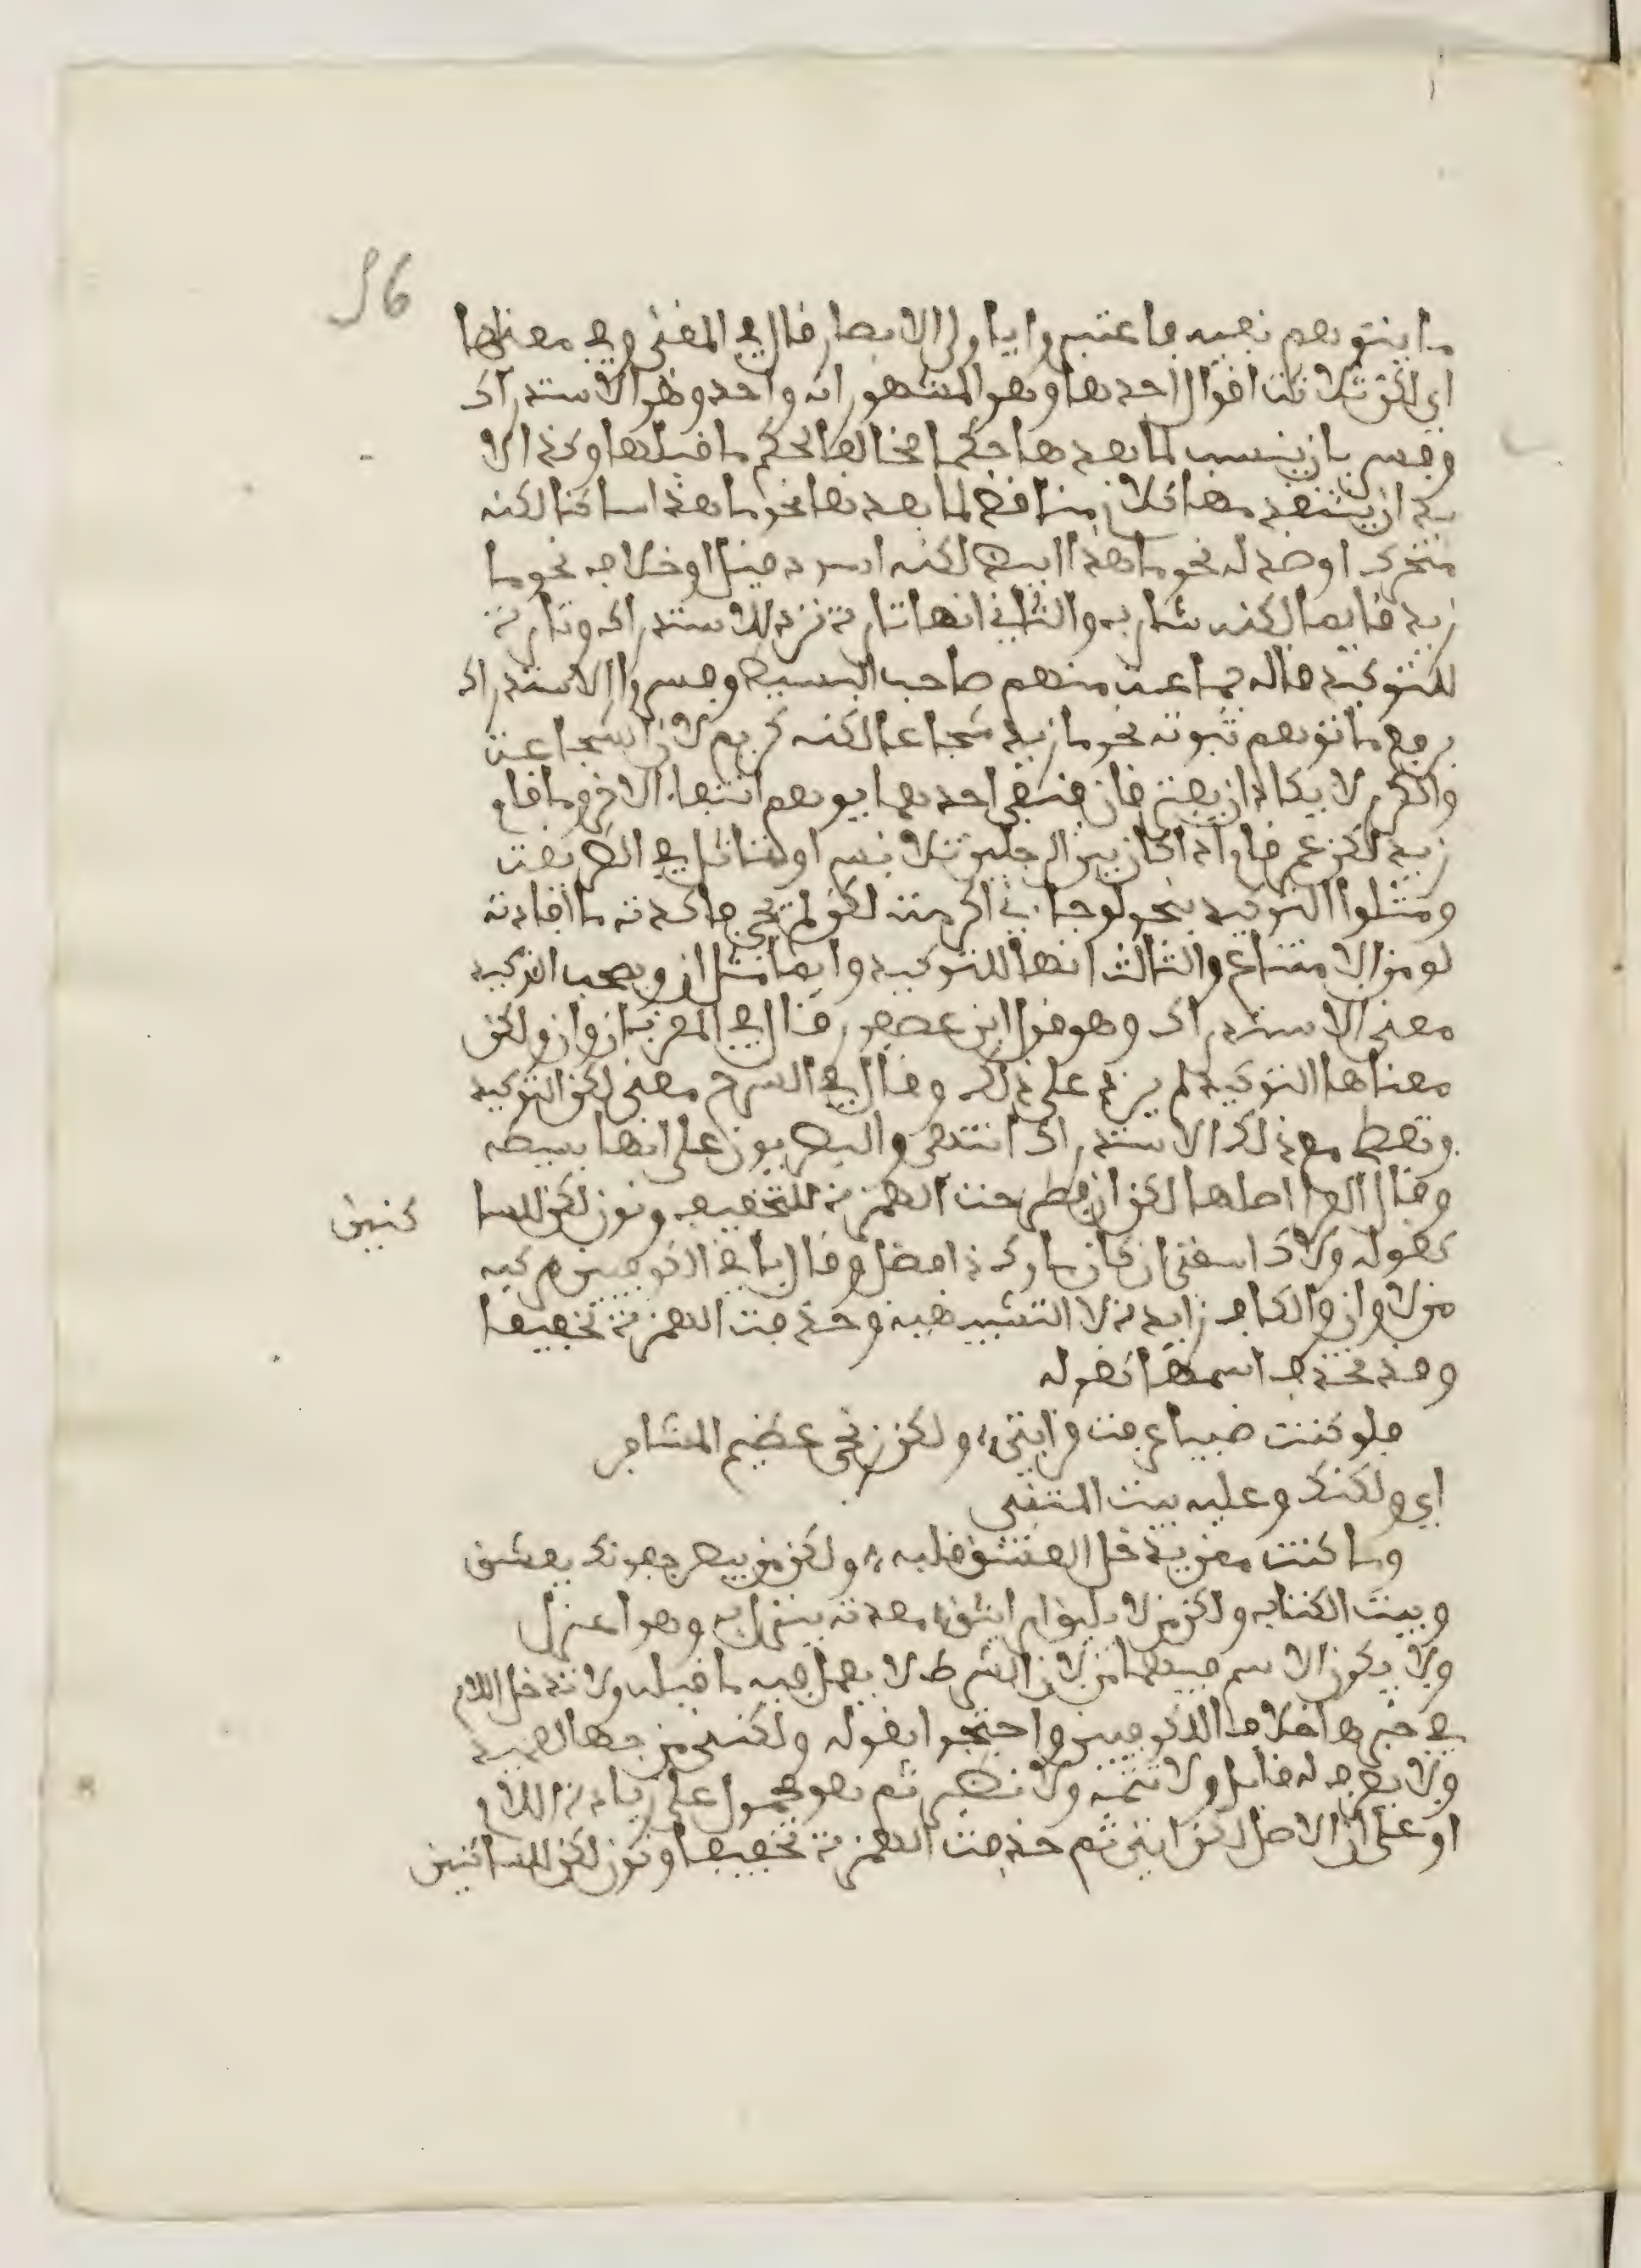 56
ما يتوهم نفيه فاعتبروا يا اولي الابصار قال في المغني وفي معناها
اي لكن ثلاثة اقوال احدها وهو المشهور انه واحد وهو الاستدراك
وفسر بان ينسب لما بعدها حكما مخالفا لحكم ما قبلها وكذا لا
بد ان يتقدمها كلام مناقض لما بعدها نحو ما هذا ساكنا لكنه
متحرك او ضد له نحو ما هذا ابيض لكنه اسود قيل او خلافه نحو ما
زيد قايما لكنه شارب والثاني انها تارة ترد للاستدراك وتارة
للتوكيد قاله جماعة منهم صاحب البسيط وفسروا الاستدراك
برفع ما توهم ثبوته نحو ما زيد شجاعا لكنه كريم لان الشجاعة
والكرم لا يكادان يفترقان فنفي احدهما يوهم انتفاء الاخر وما قام
زيد لكن عمرا قام اذا كان بين الرجلين تلابس او تماثل في الطريقة
ومثلوا التوكيد بنحو لو جاءني اكرمته لكن لم يجي فاكدت ما افادته
لو من الامتناع والثالث انها للتوكيد دايما مثل ان ويصحب التوكيد
معنى الاستدراك وهو قول ابن عصفور قال في المقرب ان وان ولكن
معناها التوكيد لم يزد على ذلك وقال في الشرح معنى لكن التوكيد
وتعطي مع ذلك الاستدراك انتهى والبصريون على انها بسيطة
وقال الفرا اصلها لكن ان فطرحت الهمزة للتخفيف ونون لكن للسا كنين
كقوله ولاك اسقني ان كان ماوك ذا فضل وقال باقي الكوفيين مركبة
من لا وان والكاف زايدة لا التشبيهية وحذفت الهمزة تخفيفا
وقد يحذف اسمها كقوله
فلو كنت ضبيا عرفت قرابتي، ولكن زنجي عظيم المشافر
اي ولكنك وعليه بيت المتنبي
وما كنت ممن يدخل العشق قلبه، ولكن من يبصر جفونك يعشق
وبيت الكتاب ولكن من لا يلق امرا ينوبه، بعدته ينزل به وهو اعزل
ولا يكون الاسم فيهما من لان الشرط لا يعمل فيه ما قبله ولا تدخل اللام
في خبرها خلافا للكوفيين واحتجوا بقوله ولكنني من حبها لعميد
ولا يعرف له قايل ولا تتمة ولا نظير ثم هو محمول على زيادة اللام
او على ان الاصل لكن انني ثم حذفت الهمزة تخفيفا ونون لكن للساكنين